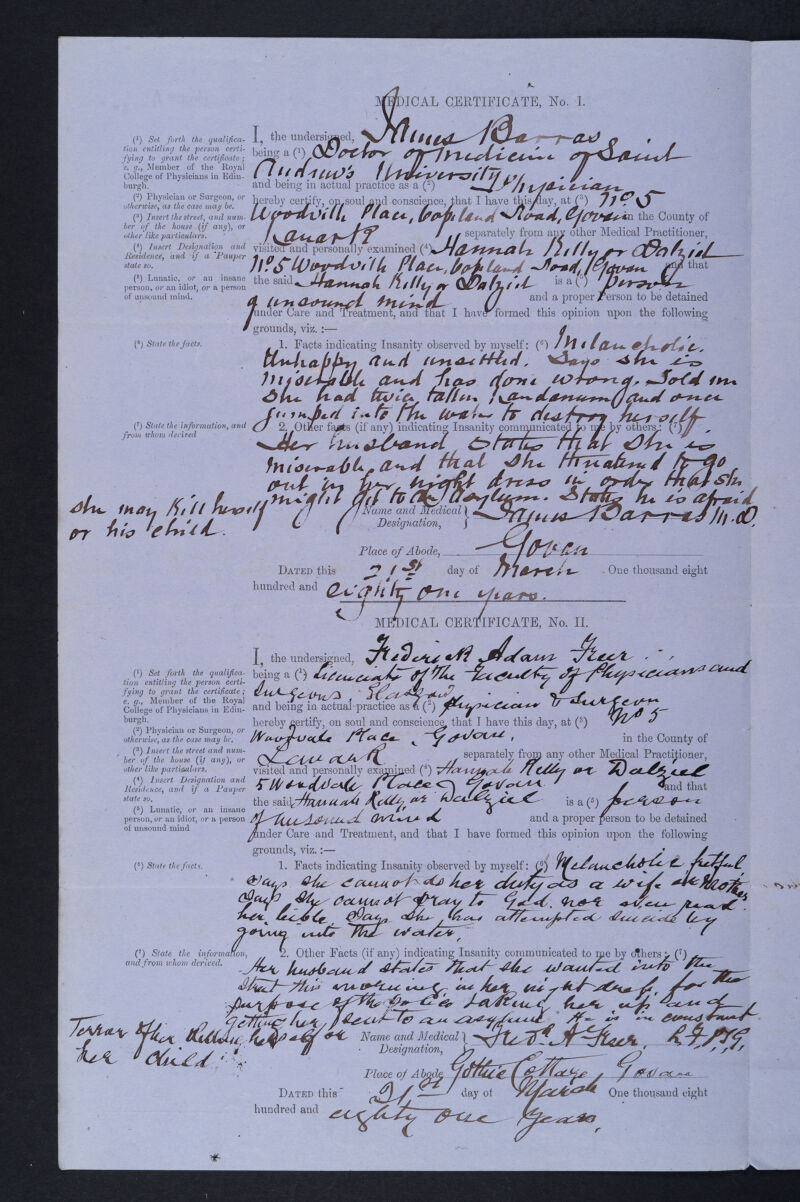 MEDICAL CERTIFICATE, No. I.
(1) Set forth the qualifica-
tion entitling the person certi-
fying to grant the certificate;
e. g., Member of the Royal
College of Physicians in Edin-
burgh.
(2) Physician or Surgeon, or
otherwise, as the case may be.
(3) Insert the street, and num-
ber of the house (if any), or
other like particulars.
(4) Insert Designation and
Residence, and if a Pauper
state so.
(5) Lunatic, or an insane
person, or an idiot, or a person
of unsound mind.
I, the undersigned, James Barras
being a (1) Doctor of Medicine of Saint
Andrew's University
and being in actual practice as a (2) Physician
hereby certify, on soul and conscience, that I have this day, at (3) No 5
Woodville Place, Copland Road, Govan in the County of
Lanark separately from any other Medical Practitioner,
visited and personally examined (4) Hannah Kelly or Dalziel
No 5 Woodville Place, Copland Road, Govan and that
the said Hannah Kelly or Dalziel is a (5) person
of unsound mind and a proper Person to be detained
under Care and Treatment, and that I have formed this opinion upon the following
grounds, viz. :—
(6) State the facts.
1. Facts indicating Insanity observed by myself: (6) Melancholic.
Unhappy and unsettled. Says she is
miserable and has done wrong. Told me
she had twice taken Laudanum and once
jumped into the water to destroy herself
(7) State the information, and
from whom derived
2. Other facts (if any) indicating Insanity communicated to me by others: (7)
Her husband states that she is
miserable, and that she threatened to go
out in her night dress in order that she
might get to the Asylum. States he is afraid
she may kill herself
or his child.
Name and Medical Designation, James Barras M.D.
Place of Abode, Govan
DATED this 21st day of March One thousand eight
hundred and eighty one years.
MEDICAL CERTIFICATE, No. II.
(1) Set forth the qualifica-
tion entitling the person certi-
fying to grant the certificate;
e. g., Member of the Royal
College of Physicians in Edin-
burgh.
(2) Physician or Surgeon, or
otherwise, as the case may be.
(3) Insert the street and num-
ber of the house (if any), or
other like particulars.
(4) Insert Designation and
Residence, and if a Pauper
state so.
(5) Lunatic, or an insane
person, or an idiot, or a person
of unsound mind
I, the undersigned, Frederick Adam Freer
being a (1) Licenciate of The Faculty of Physicians and
Surgeons Glasgow
and being in actual practice as a (2) Physician & Surgeon
hereby certify, on soul and conscience, that I have this day, at (3) No 5
Woodvale Place Govan. in the County of
Lanark separately from any other Medical Practitioner,
visited and personally examined (4) Hannah Kelly or Dalziel
5 Woodvale Place Govan and that
the said Hannah Kelly or Dalziel is a (5) person
of unsound mind and a proper Person to be detained
under Care and Treatment, and that I have formed this opinion upon the following
grounds, viz. :—
(6) State the facts.
1. Facts indicating Insanity observed by myself: (6) Melancholic fretful
says she cannot do her duty as a wife or Mother
Says she cannot pray to God nor even read
her bible. Says she has attempted suicide by
going into the water.
(7) State the information,
and from whom derived.
2. Other Facts (if any) indicating Insanity communicated to me by others: (7)
Her husband states that she wanted into the
street this morning in her night dress for the
purpose of the police taking her up and
getting her sent to an asylum. He is in constant
Terror of her killing herself or
her child
Name and Medical Designation, Fredk A Freer. L.F.P.S.G.
Place of Abode Gothic Cottage Govan
DATED this 21st day of March One thousand eight
hundred and eighty one years.